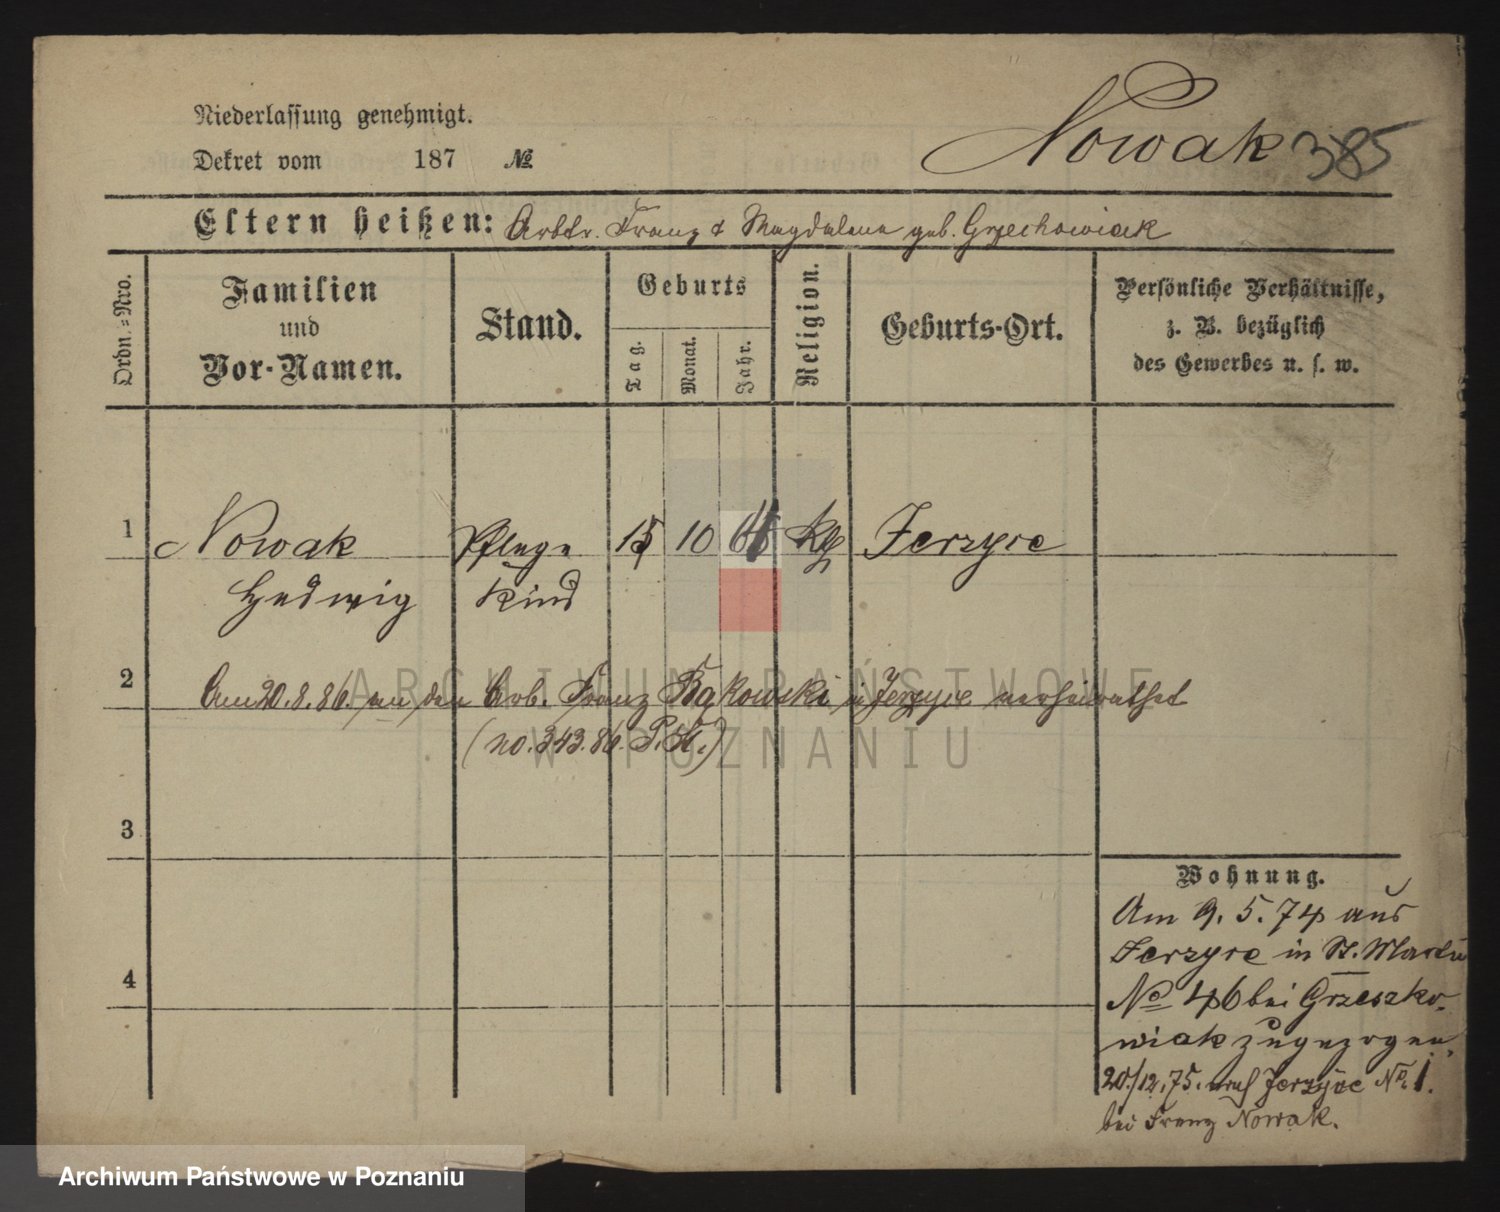 Niederlassung genehmigt.
Dekret vom 187 №
Nowak 385
Eltern heißen: Arbtr. Franz & Magdalena geb. Grzechowiak
Ordn.=Nro.
Familien
und
Vor-Namen.
Stand.
Geburts
Tag.
Monat.
Jahr.
Religion.
Geburts-Ort.
Persönliche Verhältnisse,
z. B. bezüglich
des Gewerbes u. s. w.
1 Nowak Pflege 15 10 Jerzyce
Hedwig Kind
2 Am 20.8.86. an den Arb. Franz Bąkowski in Jerzyce verheirathet
(no. 343.86. P.St.)
3
4
Wohnung.
Am 9. 5. 74 aus
Jerzyce in St. Martin
No 46 bei Grzeszko-
wiak zugezogen,
20/12.75. nach Jerzyce No. 1.
bei Franz Nowak.
ARCHIWUM PAŃSTWOWE
W POZNANIU
Archiwum Państwowe w Poznaniu